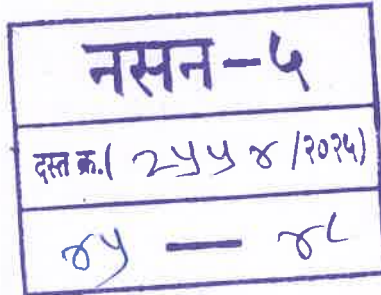 नसन - ५
दस्त क्र.( २५५४ /२०२५)
४५ — ४८